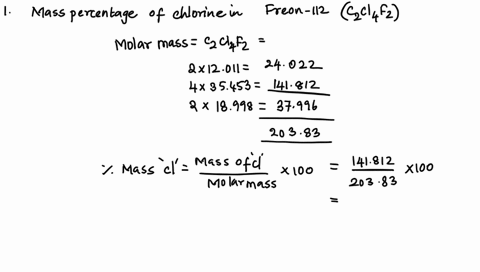 1. Mass percentage of chlorine in Freon-112 (C2Cl4F2)
Molar mass = C2Cl4F2 =
2 × 12.011 = 24.022
4 × 35.453 = 141.812
2 × 18.998 = 37.996
203.83
% Mass 'cl' = Mass of 'cl' / Molar mass × 100 = 141.812 / 203.83 × 100
=